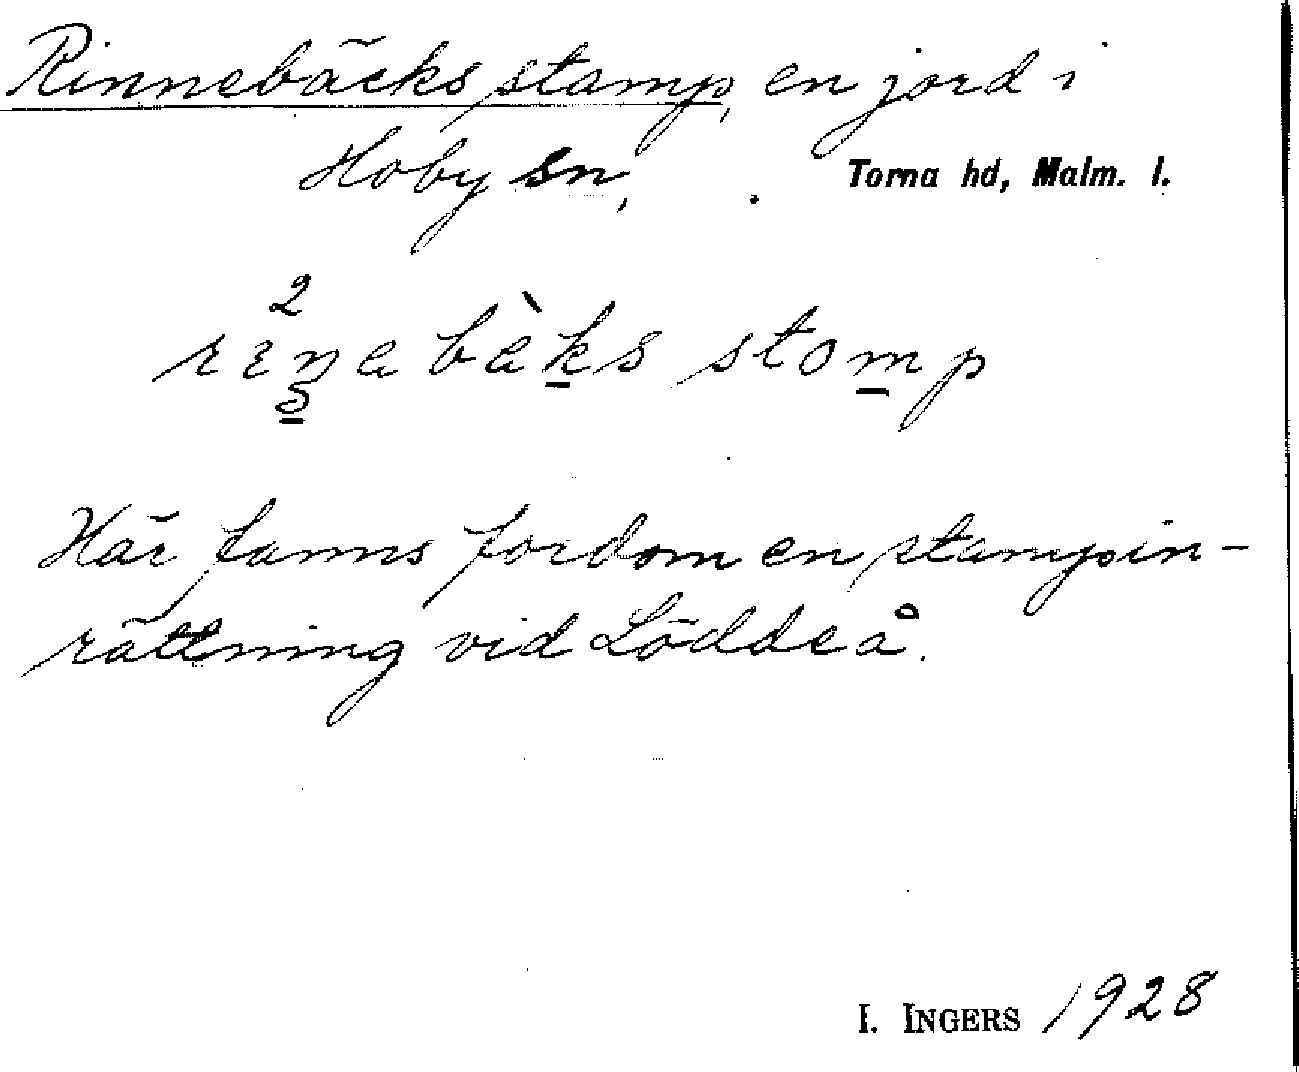 Rinnebäcks stamp, en jord i
Hoby sn, . Torna hd, Malm. l.
rinabàks stomp
Här fanns fordom en stampin-
rättning vid Löddeå.
I. INGERS 1928